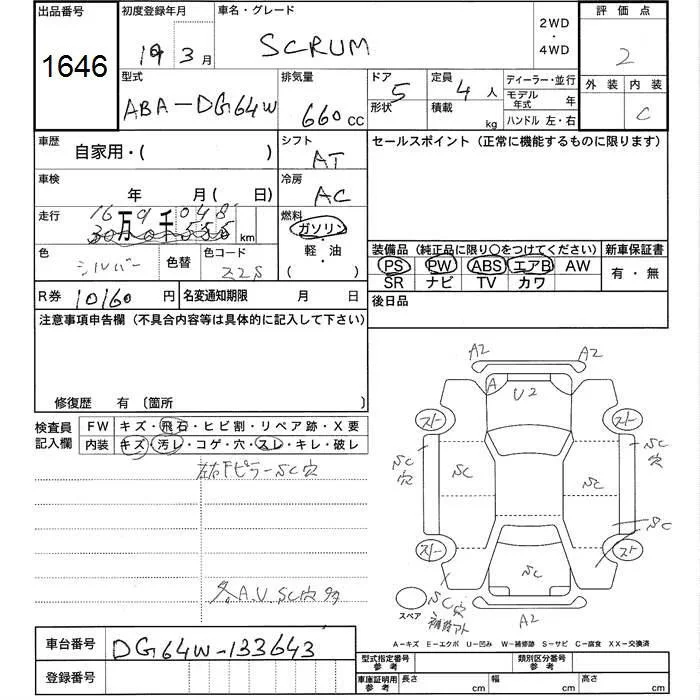 出品番号
1646
初度登録年月
19 3月
車名・グレード
SCRUM
2WD
・
4WD
評価点
2
外装 内装
C
型式
ABA-DG64W
排気量
660 cc
ドア
形状
5
定員
4 人
積載
kg
ディーラー・並行
モデル年式 年
ハンドル 左・右
車歴
自家用・( )
シフト
AT
セールスポイント (正常に機能するものに限ります)
車検
年 月( 日)
冷房
AC
走行
16万9千048
km
燃料
ガソリン
・
軽・油
・
( )
色
シルバー
色替
色コード
Z2S
装備品 (純正品に限り○をつけてください)
PS PW ABS エアB AW
SR ナビ TV カワ
新車保証書
有・無
R券 10160 円
名変通知期限 月 日
後日品
注意事項申告欄 (不具合内容等は具体的に記入して下さい)
修復歴 有 〔箇所 〕
検査員記入欄
FW キズ・飛石・ヒビ割・リペア跡・X要
内装 キズ・汚レ・コゲ・穴・スレ・キレ・破レ
左右Fピラー SC穴
A.U.SC穴
A2 A2
A U2
スト スト
SC穴 SC SC SC穴
SC
スト スト
SC
SC穴
補修アト
A2
スペア
A-キズ E-エクボ U-凹み W-補修跡 S-サビ C-腐食 XX-交換済
車台番号
DG64W-133643
登録番号
型式指定番号
参考
類別区分番号
参考
車庫証明用
参考
長さ cm
幅 cm
高さ cm